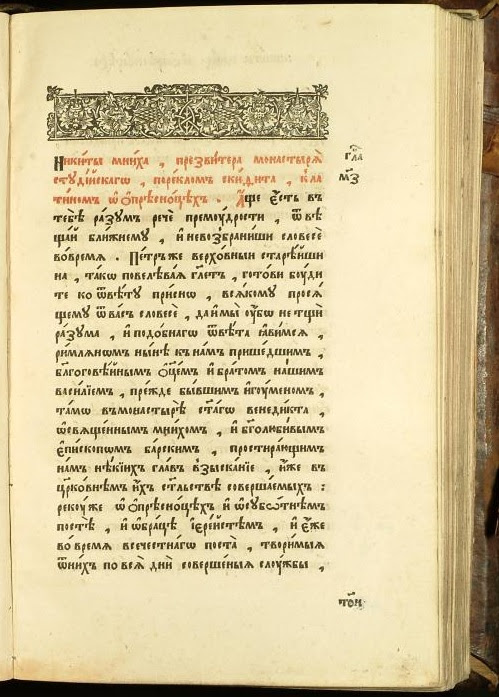 Никиты мниха , презвитера монастырѧ̀ гла̑
стꙋді́йскагѡ , порекломъ скиди́та , к̾ла мз҃
тиномъ ѡ҆ ѡ҆прѣсноцѣ́хъ . А҆́ще є҆́сть въ
тебѣ̀ ра́зꙋмъ речѐ премоу́дрости , ѿвѣ
ща́й бли́жнемꙋ , и҆ невозбрани́ши словесѐ
вовремѧ . Пе́тръже верхо́вныи старѣ́йши
на , та́кѡ повелѣва́ѧ гл҃етъ , гото́ви боу́ди
те ко ѿвѣ́тꙋ при́снѡ , всѧ́комꙋ просѧ́
щемꙋ ѿва́съ словесѐ , да́имы̀ оу҆́бѡ не тщѝ
ра́зꙋма , и҆ подо́бнагѡ ѿвѣ́та ꙗ҆ви́мсѧ ,
ри́млѧнѡмъ ны́нѣ к̾на́мъ прише́дшимъ ,
бл҃гоговѣ́йнымъ ѻ҆ц҃е́мъ и҆ бра́томъ на́шимъ
васи́лїемъ , пре́жде бы́вшимъ и҆гоу́меномъ ,
та́мѡ в̾монастырѣ̀ ст҃а́гѡ венеди́кта ,
ѡ҆свѧще́ннымъ мни́хомъ , и҆ бг҃олюби́вымъ
є҆пи́скопѡмъ ба́рскимъ , простира́ющимъ
на́мъ нѣ́кїихъ гла́въ взыска́нїе , и҆́же въ
цр҃ко́внемъ и҆́хъ ст҃льствѣ̀ соверша́емыхъ :
рекоу́же ѡ҆ ѡ҆прѣсноцѣ́хъ и҆ ѡ҆сꙋббѡ́тнѣмъ
постѣ̀ , и҆ ѡ҆бра́цѣ і҆ере́йстѣмъ , и҆ є҆́же
во вре́мѧ всечестна́гѡ поста̀ , твори́мыѧ
ѿни́хъ по всѧ̑ дни̑ соверше́ныѧ слоу́жбы ,
то́и